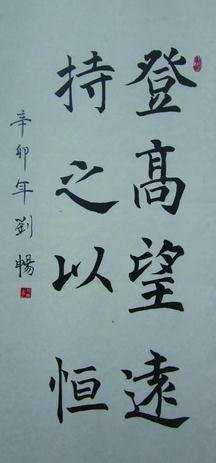 登高望遠
持之以恒
辛卯年劉暢